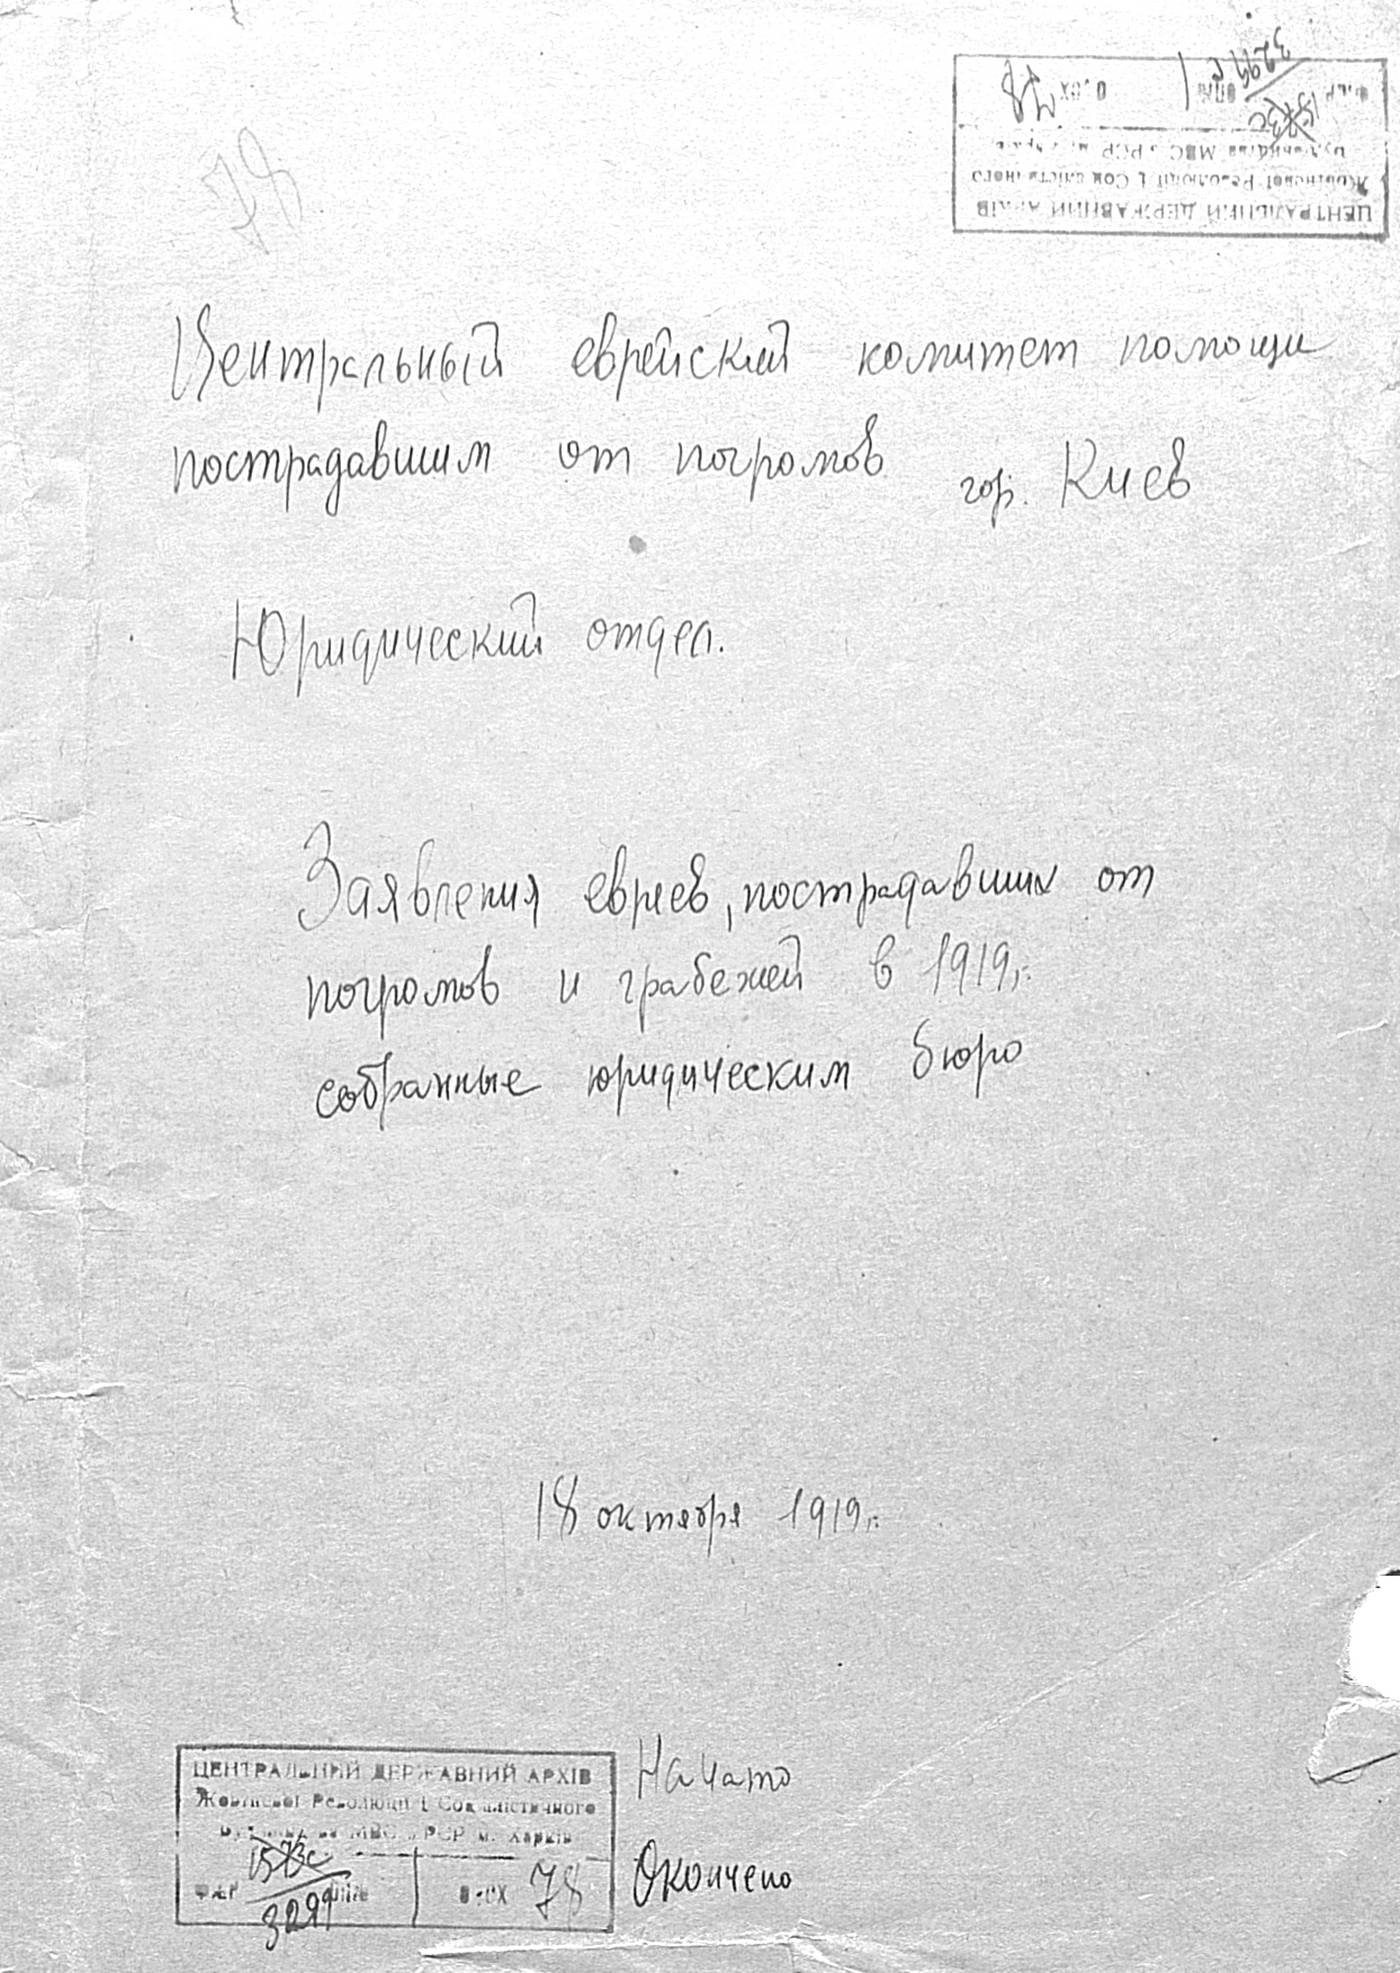 3299с
1573с
Ф.ЕР ОПИС 1 О.ЗСХ 78
Будівництва МВС УРСР м. Харків
Жовтневої Революції і Соціалістичного
ЦЕНТРАЛЬНИЙ ДЕРЖАВНИЙ АРХІВ
78
Центральный еврейский комитет помощи
пострадавшим от погромов гор. Киев
Юридический отдел.
Заявления евреев, пострадавших от
погромов и грабежей в 1919 г.
собранные юридическим бюро
18 октября 1919 г.
ЦЕНТРАЛЬНИЙ ДЕРЖАВНИЙ АРХІВ
Жовтневої Революції і Соціалістичного
Будівництва МВС УРСР м. Харків
1573с
3299
1
78
Начато
Окончено